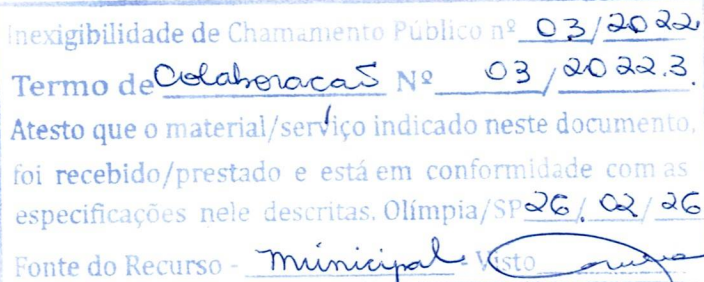 Inexigibilidade de Chamamento Público nº 03/2022
Termo de Colaboracao Nº 03/2022.3.
Atesto que o material/serviço indicado neste documento,
foi recebido/prestado e está em conformidade com as
especificações nele descritas. Olímpia/SP 26/02/26
Fonte do Recurso - Municipal - Visto